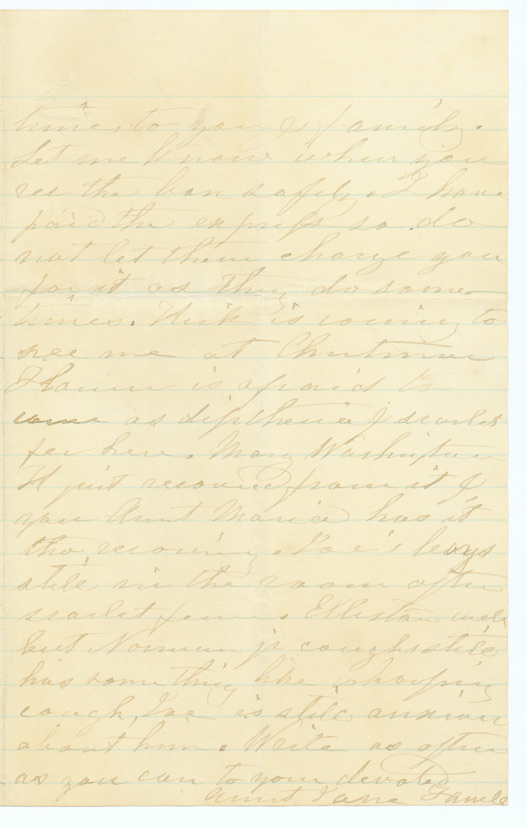 times to you & family.
Let me know when you
rec the box safely. I have
paid the express so do
not let them charge you
for it as they do some
times. Kirk is coming to
see me at Christmas
is afraid to
come as diptheria & scarlet
fev here. Mary Washington
H just recovered from it &
your Aunt Maria has it
tho, recovering. Zoe's boys
still in the room after
scarlet fever. Elliston well
but Norman jr coughs still
has something like whooping
cough, Zoe is still anxious
about him. Write as often
as you can to your devoted
Aunt Jane